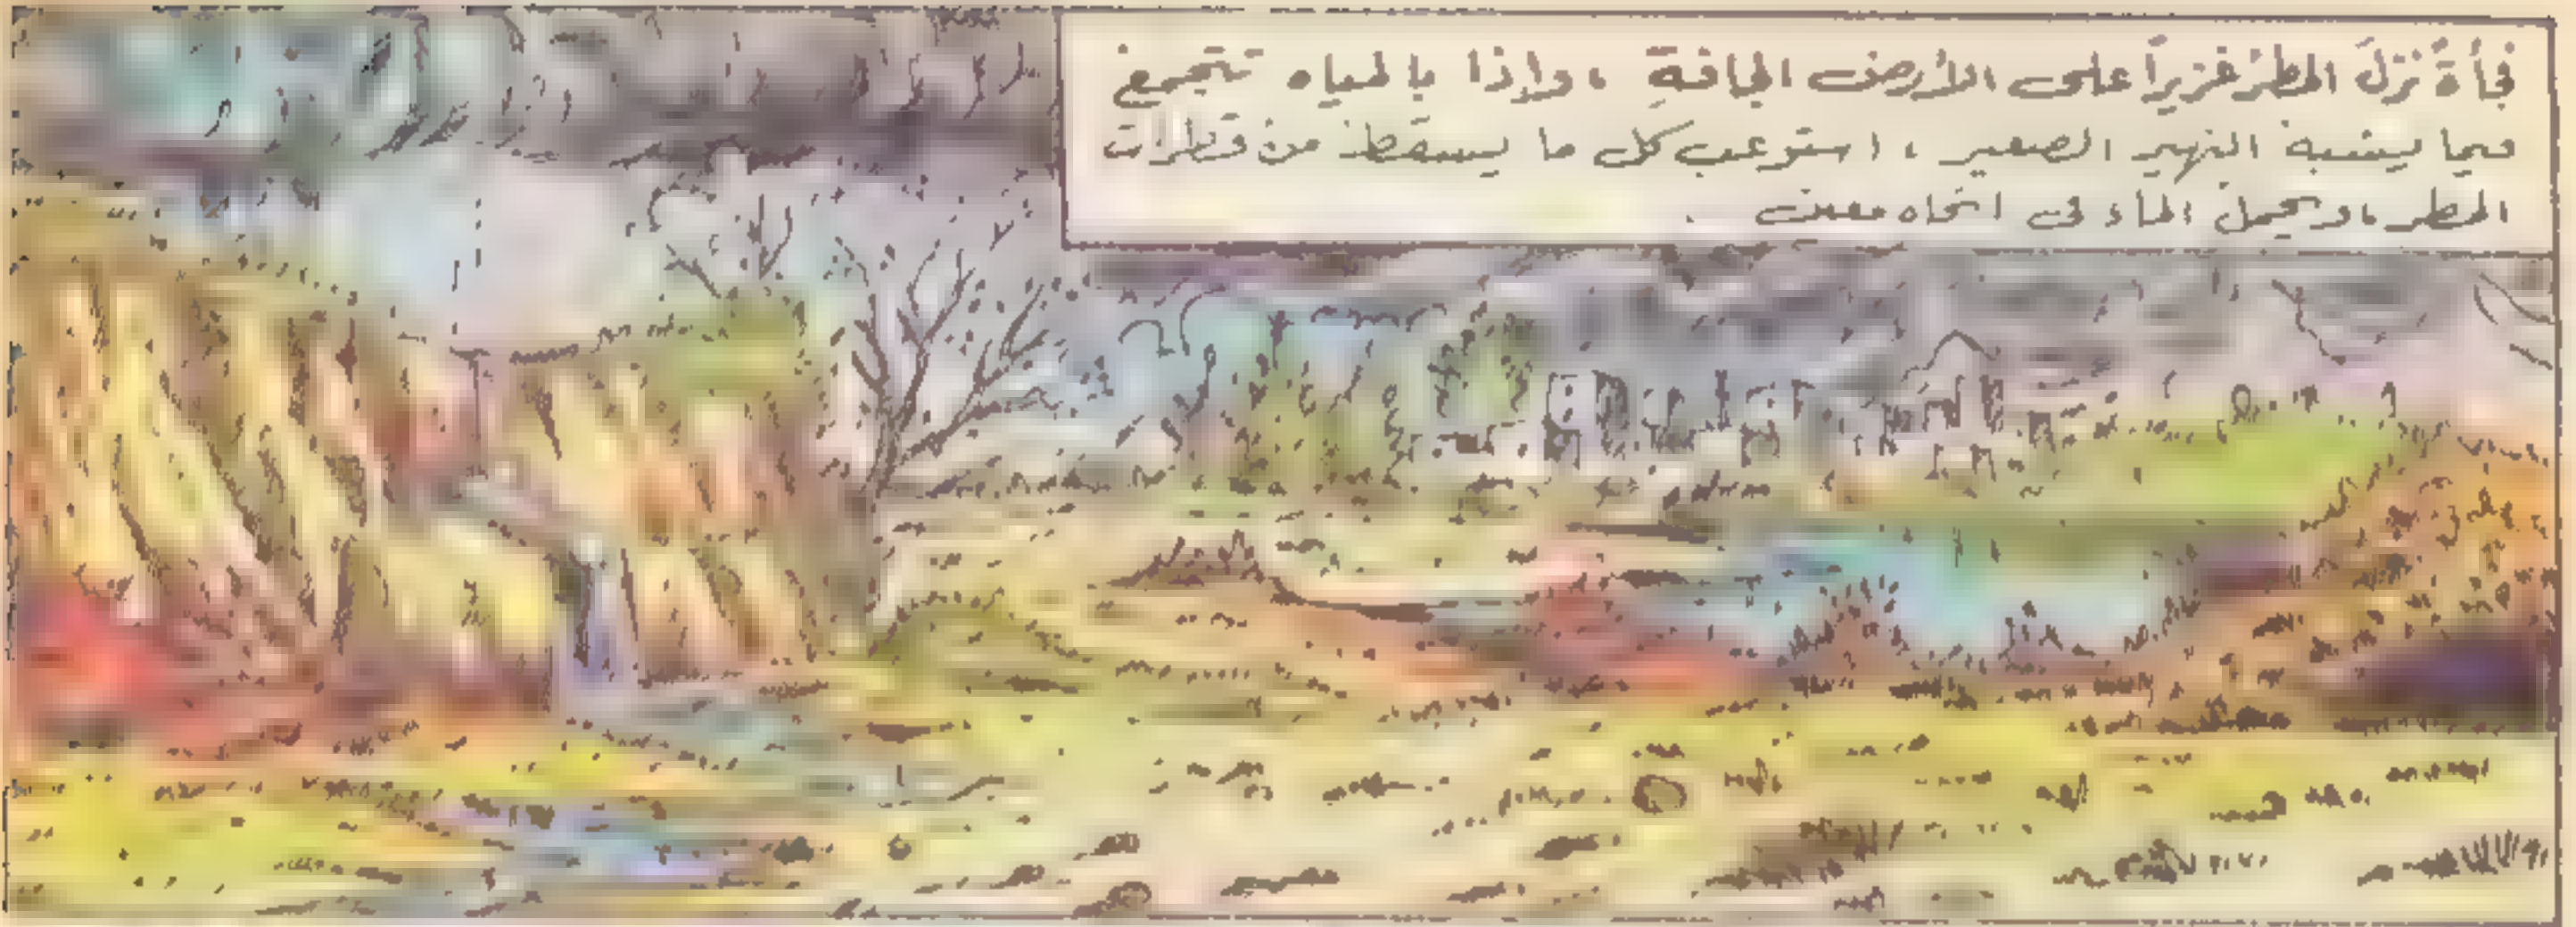 فجأةً نزلَ المطرُ غزيراً على الأرض الجافةِ ، وإذا بالمياه تتجمع
فيما يشبه النهير الصغير ، استوعب كل ما يسقط من قطرات
المطر ، ويحمل الماء فى اتجاه معين .